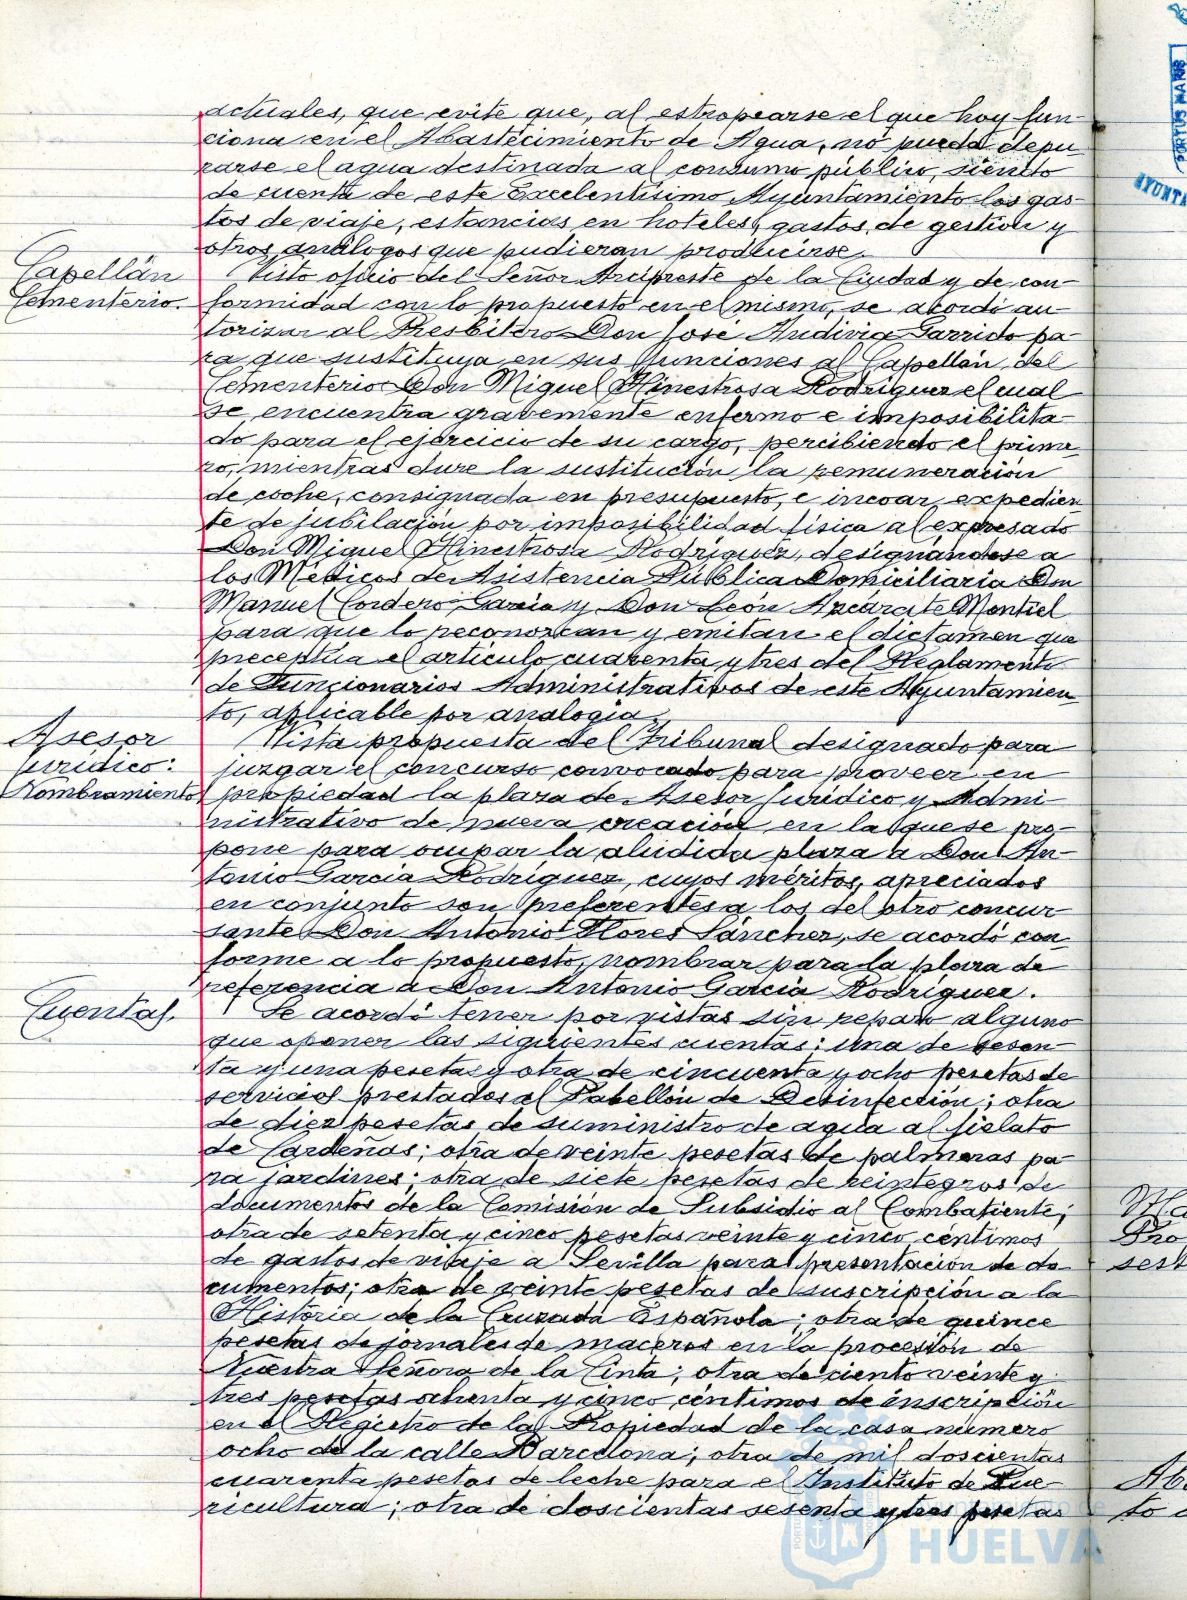 actuales, que evite que, al estropearse el que hoy fun-
ciona en el Abastecimiento de Agua, no pueda depu
rarse el agua destinada al consumo público, siendo
de cuenta de este Excelentísimo Ayuntamiento los gas-
tos de viaje, estancias en hoteles, gastos de gestión y
otros análogos que pudieran producirse.
Capellán
Cementerio.
Visto oficio del Señor Arcipreste de la Ciudad y de con-
formidad con lo propuesto en el mismo, se acordó au-
torizar al Presbítero Don José Andivia Garrido pa-
ra que sustituya en sus funciones al Capellán del
Cementerio Don Miguel Hinestrosa Rodríguez el cual
se encuentra gravemente enfermo e imposibilita-
do para el ejercicio de su cargo, percibiendo el prime
ro, mientras dure la sustitución la remuneración
de coche, consignada en presupuesto, e incoar expedien
te de jubilación por imposibilidad física al expresado
Don Miguel Hinestrosa Rodríguez, designándose a
los Médicos de Asistencia Pública Domiciliaria Don
Manuel Cordero García y Don León Azcárate Montiel
para que lo reconozcan y emitan el dictamen que
preceptúa el artículo cuarenta y tres del Reglamento
de Funcionarios Administrativos de este Ayuntamien
to, aplicable por analogía.
Asesor
Jurídico:
Nombramiento
Vista propuesta del Tribunal designado para
juzgar el concurso convocado para proveer en
propiedad la plaza de Asesor Jurídico y Admi-
nistrativo de nueva creación en la que se pro-
pone para ocupar la aludida plaza a Don An-
tonio García Rodríguez, cuyos méritos, apreciados
en conjunto son preferentes a los del otro concur
sante Don Antonio Flores Sánchez, se acordó con
forme a lo propuesto, nombrar para la plaza de
referencia a Don Antonio García Rodríguez.
Cuentas.
Se acordó tener por vistas sin reparo alguno
que oponer las siguientes cuentas: una de sesen-
ta y una pesetas y otra de cincuenta y ocho pesetas de
servicios prestados al Pabellón de Desinfección; otra
de diez pesetas de suministro de agua al fielato
de Cardeñas; otra de veinte pesetas de palmeras pa
ra jardines; otra de siete pesetas de reintegros de
documentos de la Comisión de Subsidio al Combatiente;
otra de setenta y cinco pesetas veinte y cinco céntimos
de gastos de viaje a Sevilla para presentación de do-
cumentos; otra de veinte pesetas de suscripción a la
Historia de la Cruzada Española; otra de quince
pesetas de jornales de maceros en la procesión de
Nuestra Señora de la Cinta; otra de ciento veinte y
tres pesetas ochenta y cinco céntimos de inscripción
en el Registro de la Propiedad de la casa número
ocho de la calle Barcelona; otra de mil doscientas
cuarenta pesetas de leche para el Instituto de Pue-
ricultura; otra de doscientas sesenta y tres pesetas
HUELVA